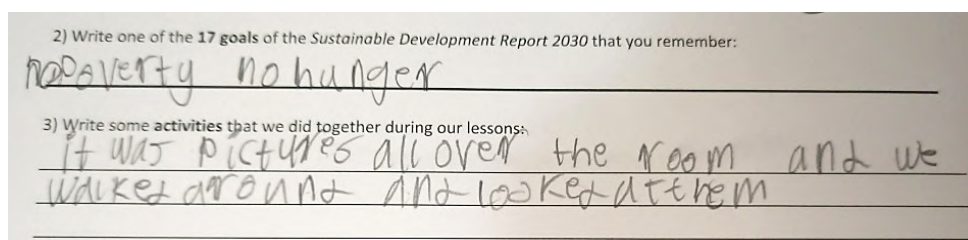 2) Write one of the 17 goals of the Sustainable Development Report 2030 that you remember:
no Poverty no hunger
3) Write some activities that we did together during our lessons:
it was pictures all over the room and we
walked around and looked at them